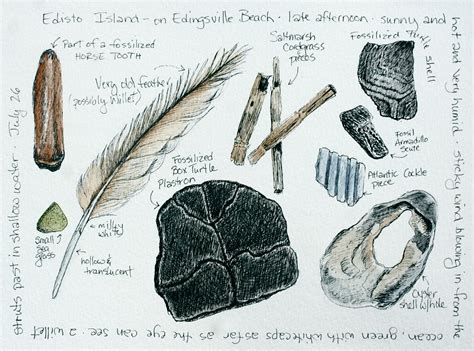 Edisto Island - on Edingsville Beach · late afternoon · sunny and
hot and very humid · sticky wind blowing in from the
ocean, green with whitecaps as far as the eye can see · 2 willet
struts past in shallow water · July 26
Part of a fossilized
HORSE TOOTH
Very old feather
(possibly Willet)
Saltmarsh
Cordgrass
Fossilized Turtle
shell
Fossil
Armadillo
Scute
Atlantic Cockle
Piece
Fossilized
Box Turtle
Plastron
small
sea
glass
milky
white
hollow &
translucent
Oyster
shell whole